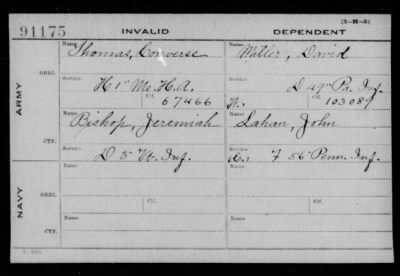 (3-H-3)
91175 INVALID DEPENDENT
Name Thomas, Converse Name Waller, David
ARMY
ORIG.
Service H 1" Me. H.A. Service D 49" Pa. Inf.
Ctf. 67466 Ctf. 103087
Name Bishop, Jeremiah Name Lahan, John
CTF.
Service D 3" Vt. Inf. Service F 56 Penn. Inf.
NAVY
ORIG.
Name Name
Service Service
Ctf. Ctf.
CTF.
Name Name
Service Service